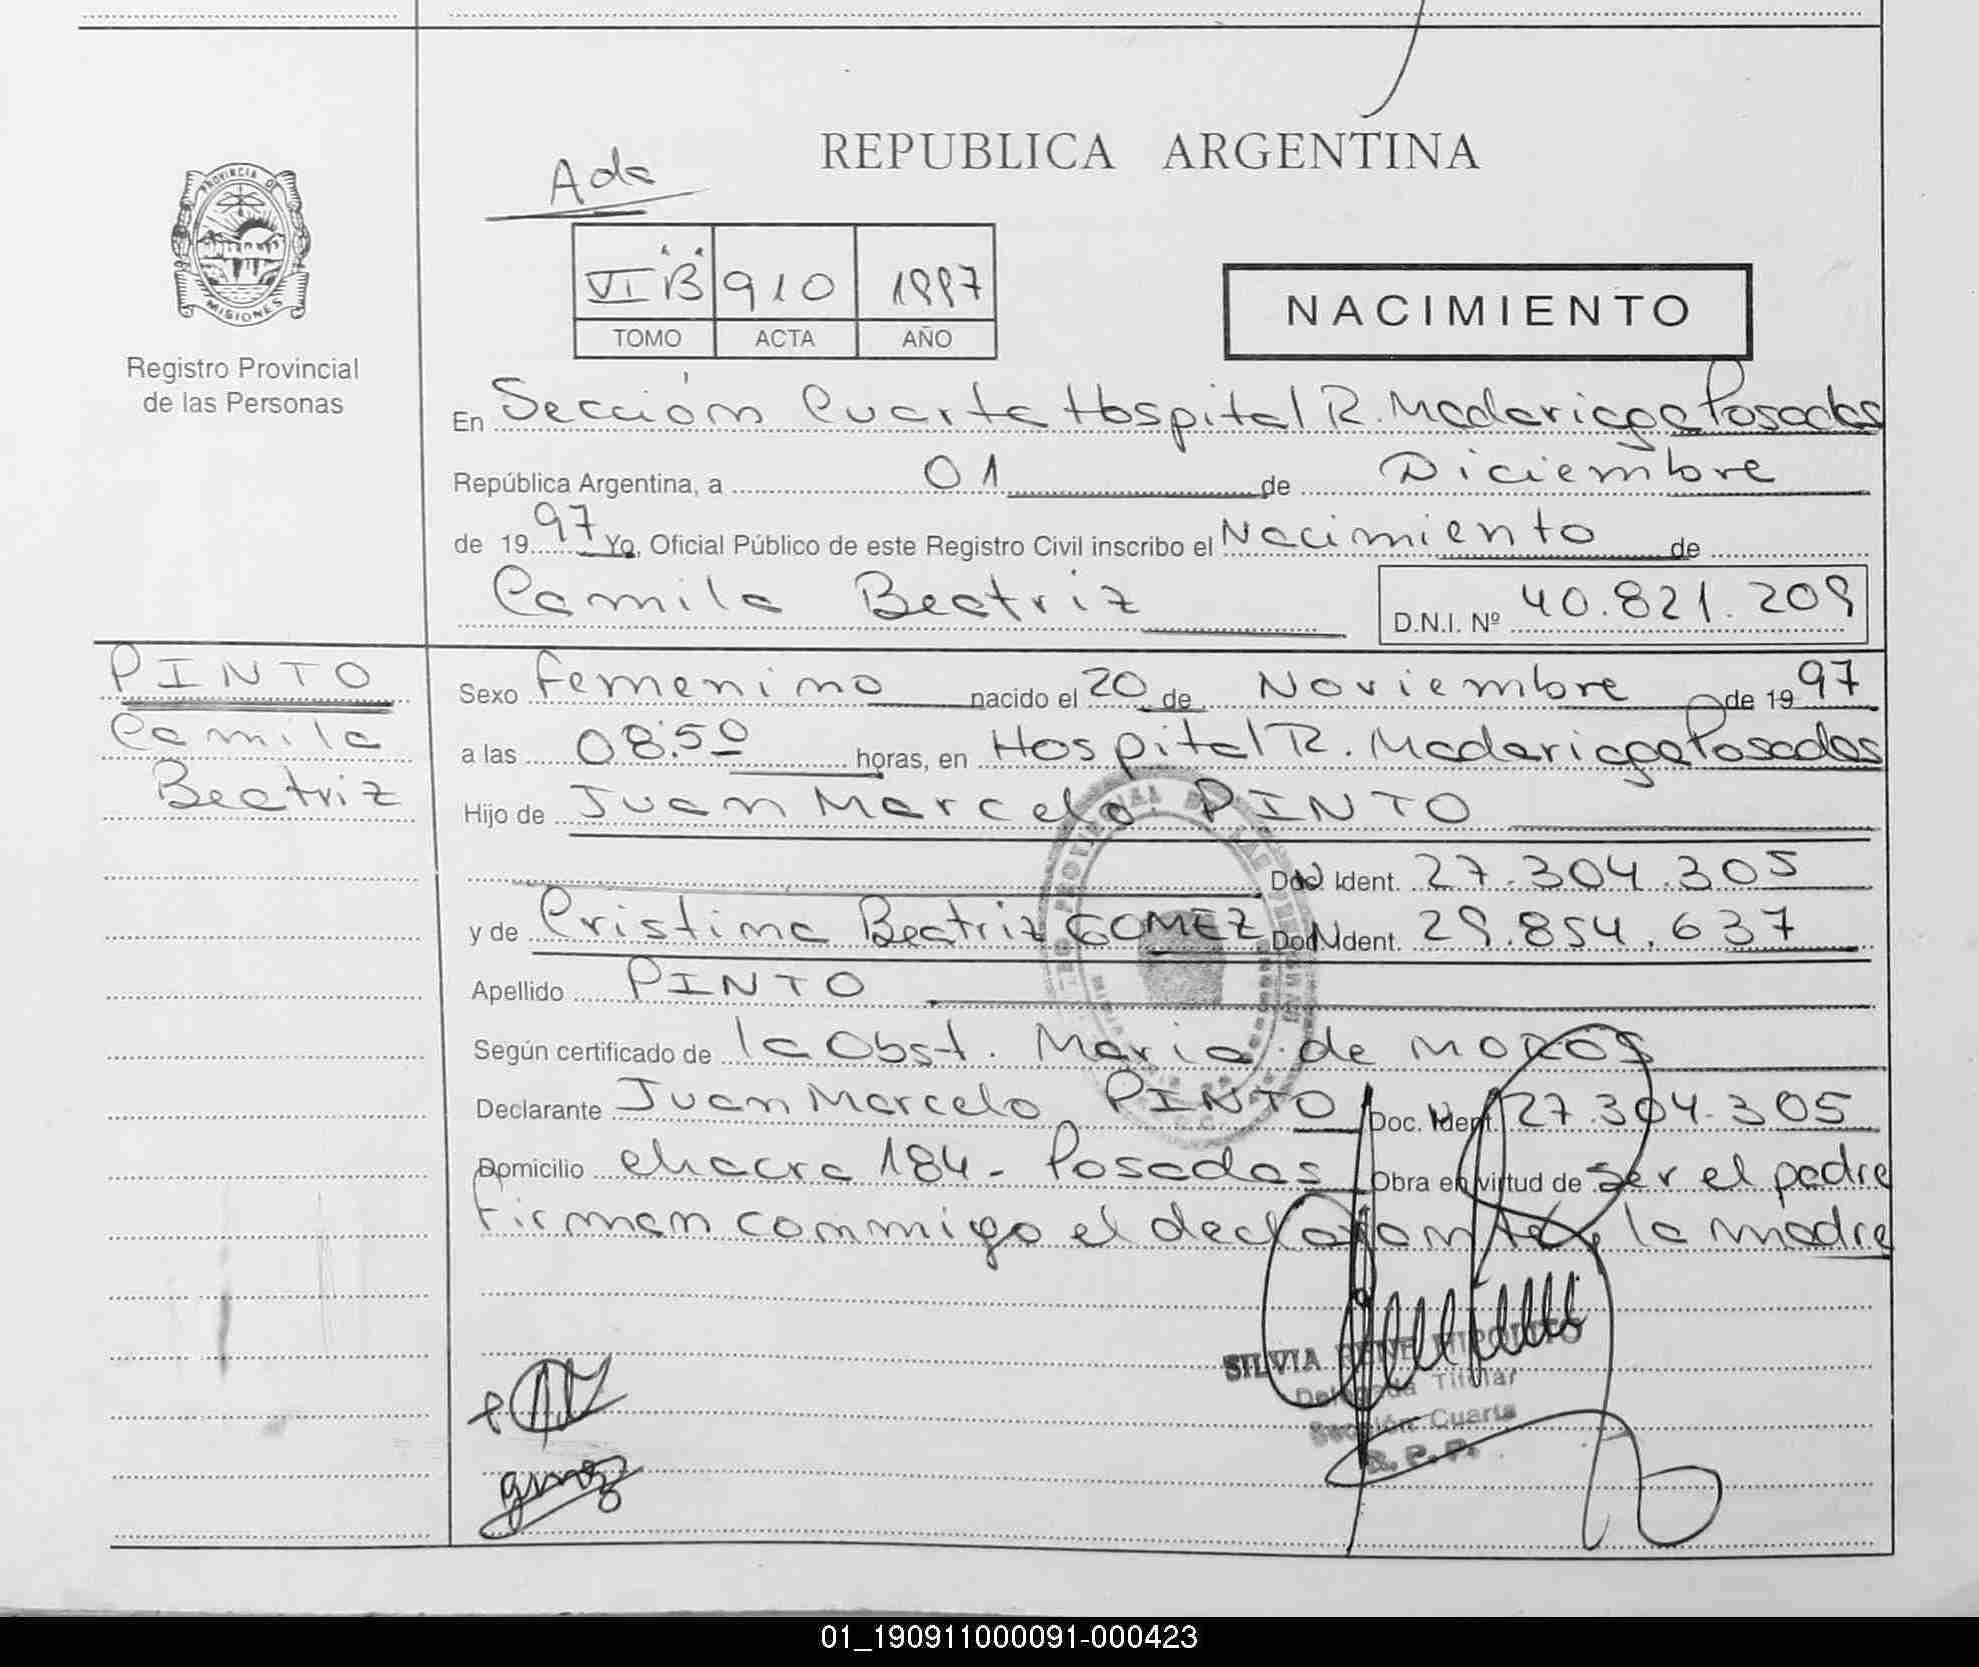 REPUBLICA ARGENTINA
PROVINCIA DE
MISIONES
Registro Provincial
de las Personas
Ada
VI "B" 910 1997
TOMO ACTA AÑO
NACIMIENTO
En Sección Cuarta Hospital R. Madariaga Posadas
República Argentina, a 01 de Diciembre
de 1997 Yo, Oficial Público de este Registro Civil inscribo el Nacimiento de
Camila Beatriz D.N.I. Nº 40.821.209
PINTO
Camila
Beatriz
Sexo femenino nacido el 20 de Noviembre de 1997
a las 08:50 horas, en Hospital R. Madariaga Posadas
Hijo de Juan Marcelo PINTO
Doc. Ident. 27.304.305
y de Cristina Beatriz GOMEZ Doc. Ident. 29.854.637
Apellido PINTO
Según certificado de la Obst. Maria de MOROS
Declarante Juan Marcelo PINTO Doc. Ident. 27.304.305
Domicilio chacra 184 - Posadas Obra en virtud de ser el padre
firman conmigo el declarante y la madre
SILVIA RENE
Delegada Titular
Sección Cuarta
R. P. P.
gmez
01_190911000091-000423